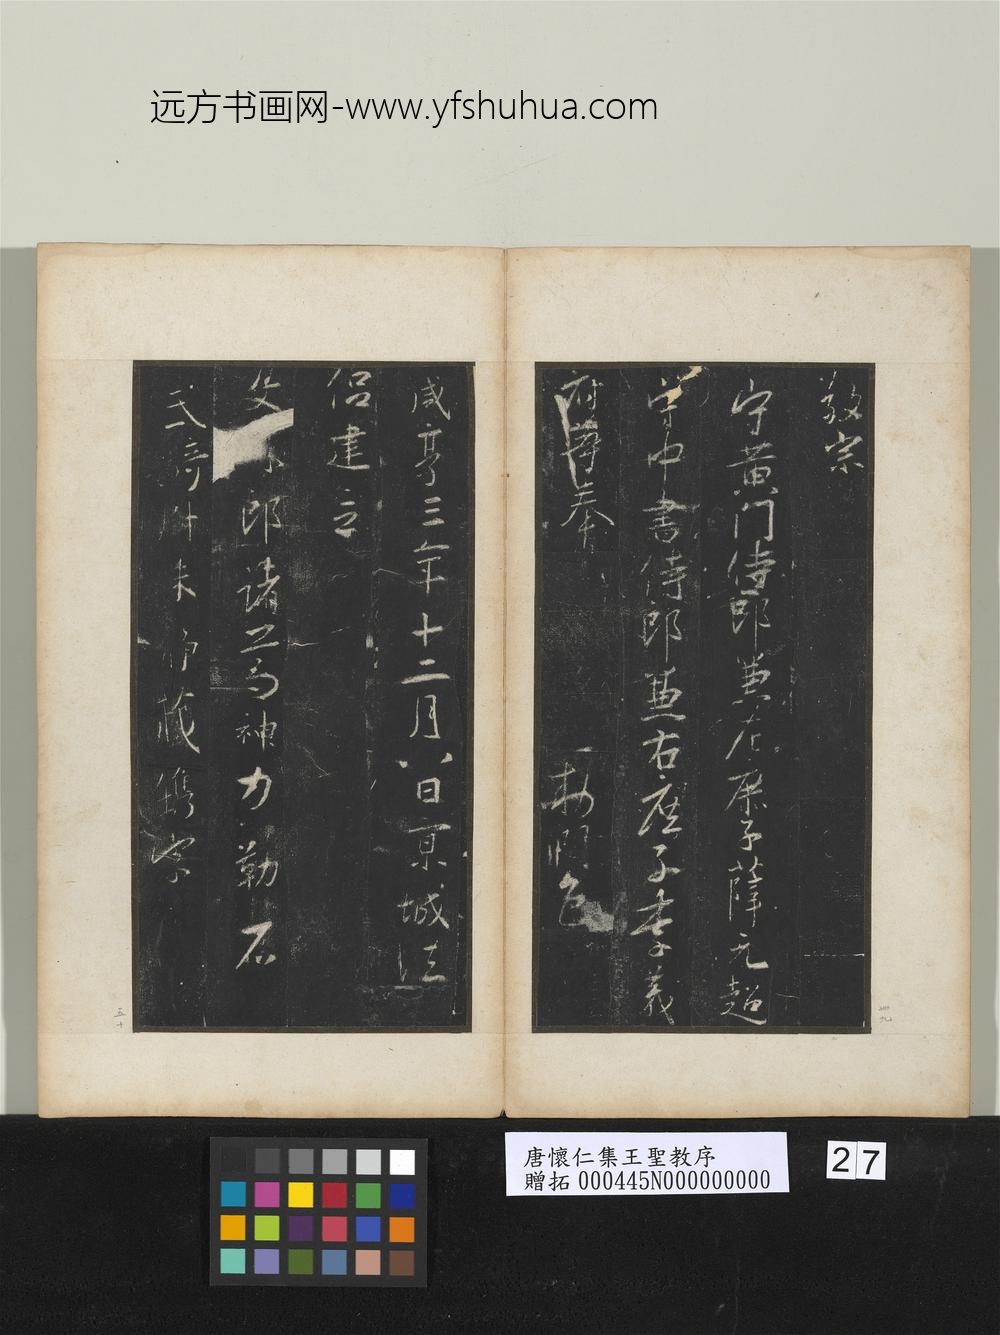 远方书画网-www.yfshuhua.com
敬宗
守黄門侍郎兼左庶子薛元超
守中書侍郎兼右庶子李義
府等奉
勅潤色
咸亨三年十二月八日京城法
侣建立
文 郎諸葛神力勒石
武騎尉朱静藏鐫字
卌九
五十
唐懷仁集王聖教序
贈拓 000445N000000000
27